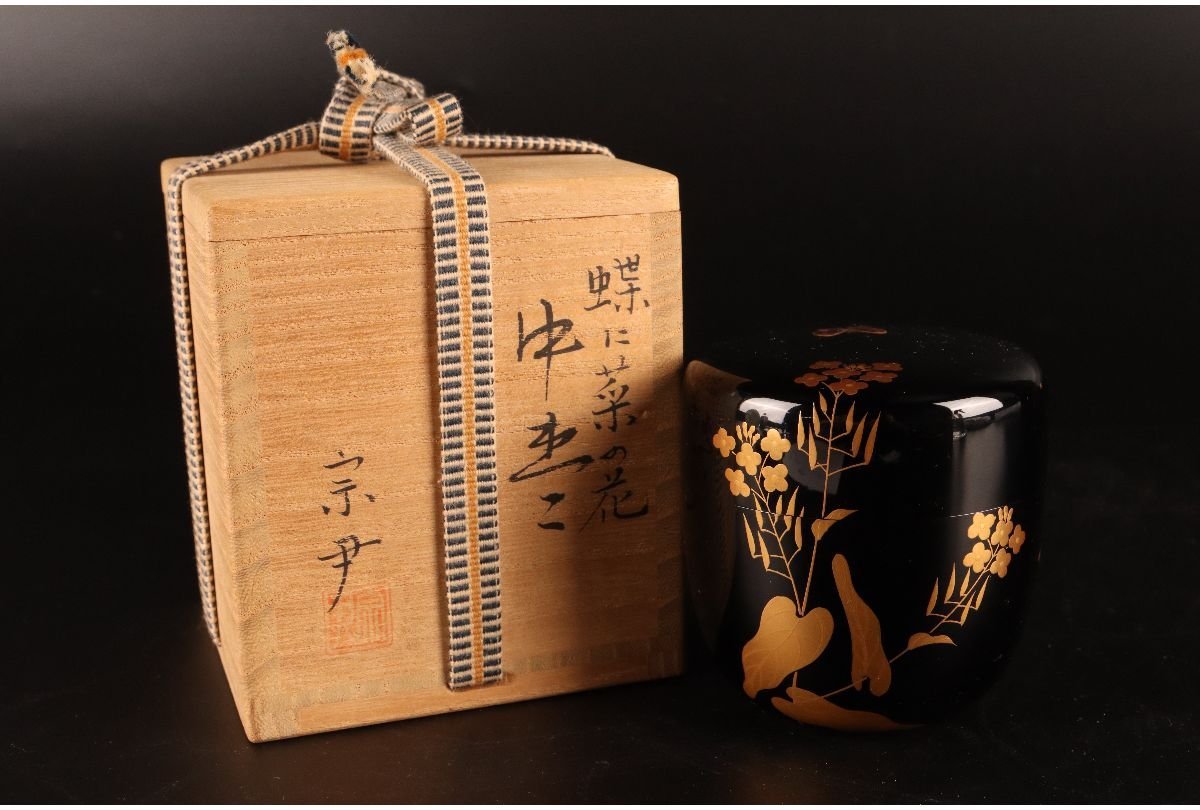 蝶に菜の花
中棗
宗尹